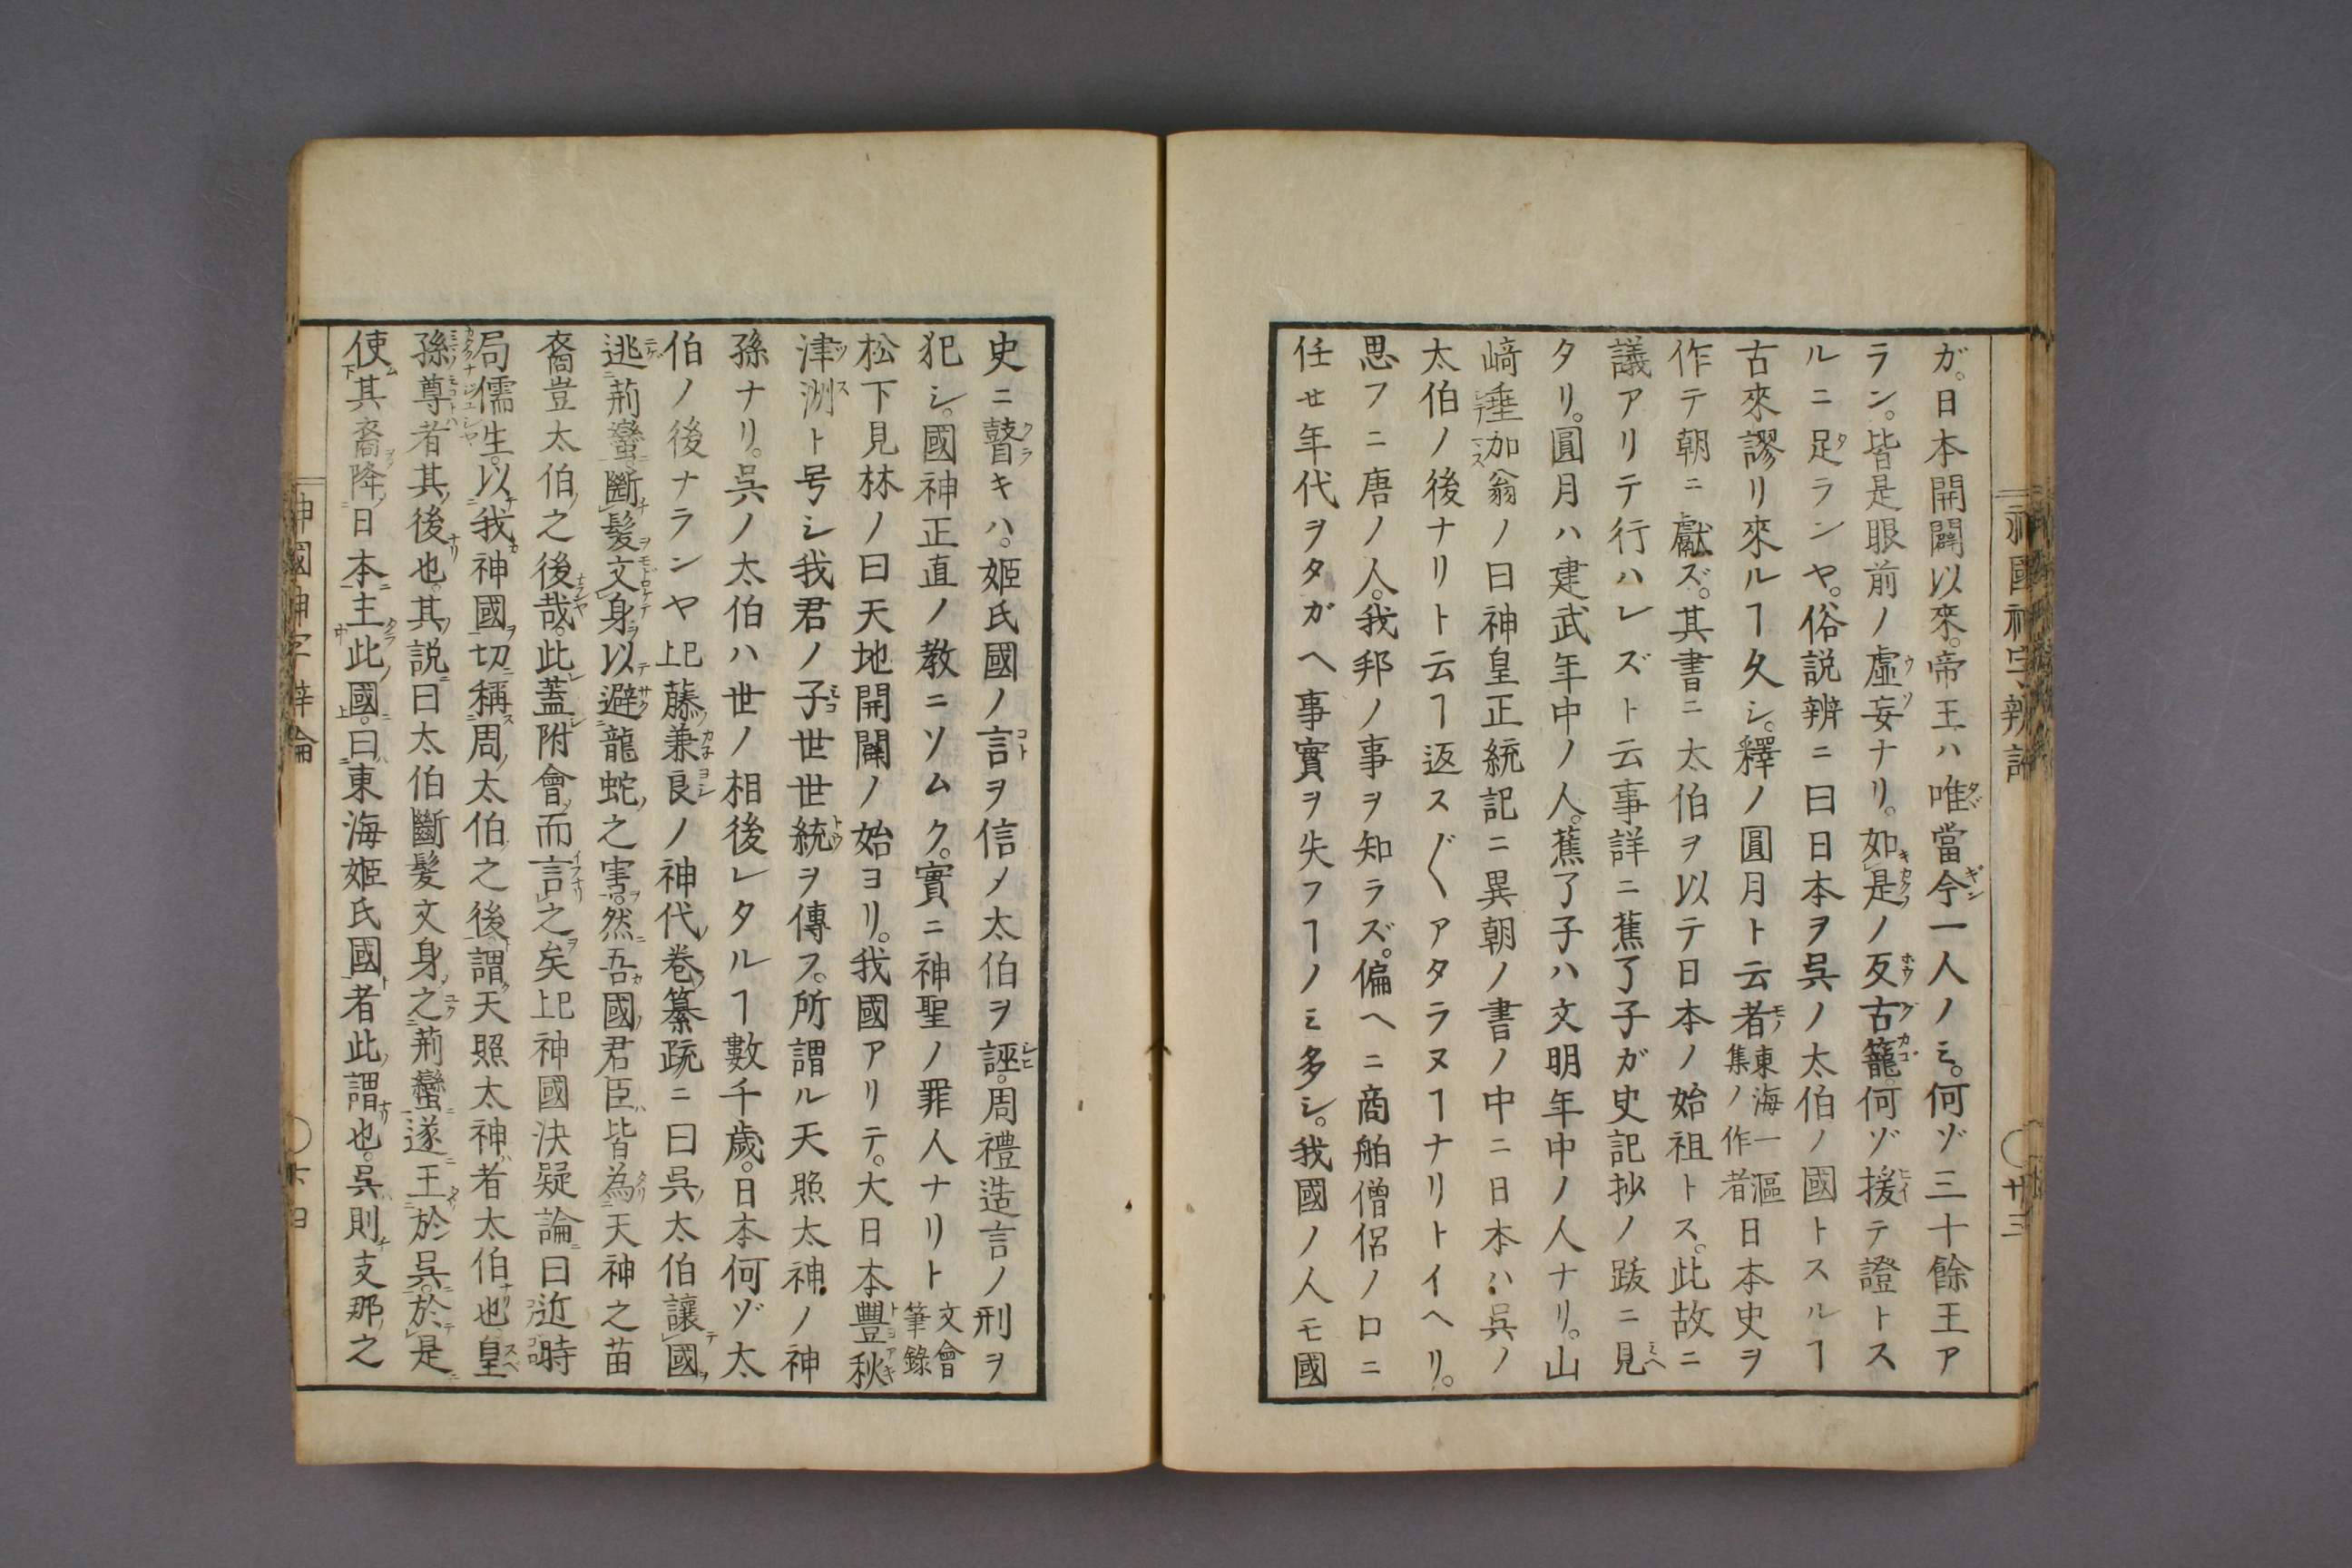 ガ。日本開闢以來。帝王ハ唯當今一人ノミ。何ゾ三十餘王ア
ラン。皆是眼前ノ虛妄ナリ。如是ノ反古籠。何ゾ援テ證トス
ルニ足ランヤ。俗説辨ニ曰日本ヲ呉ノ太伯ノ國トスルヿ
古來謬リ來ルヿ久シ。釋ノ圓月ト云者東海一漚集ノ作者日本史ヲ
作テ朝ニ獻ズ。其書ニ太伯ヲ以テ日本ノ始祖トス。此故ニ
議アリテ行ハレズト云事詳ニ蕉了子ガ史記抄ノ跋ニ見
タリ。圓月ハ建武年中ノ人。蕉了子ハ文明年中ノ人ナリ。山
﨑垂加翁ノ曰神皇正統記ニ異朝ノ書ノ中ニ日本ハ呉ノ
太伯ノ後ナリト云ヿ返ス〴〵アタラヌヿナリトイヘリ。
思フニ唐ノ人。我邦ノ事ヲ知ラズ。偏ヘニ商舶僧侶ノロニ
任せ年代ヲタガヘ事實ヲ失フヿノミ多シ。我國ノ人モ國
史ニ瞽キハ。姬氏國ノ言ヲ信ノ太伯ヲ誣。周禮造言ノ刑ヲ
犯シ。國神正直ノ教ニソムク。實ニ神聖ノ罪人ナリト文會筆錄
松下見林ノ曰天地開闢ノ始ヨリ。我國アリテ。大日本豐秋
津洲ト号シ我君ノ子世世統ヲ傳フ。所謂ル天照太神ノ神
孫ナリ。呉ノ太伯ハ世ノ相後レタルヿ數千歲。日本何ゾ太
伯ノ後ナランヤ上巳藤兼良ノ神代卷纂疏ニ曰呉太伯讓國
逃荊蠻。斷髮文身以避龍蛇之害。然吾國君臣皆為天神之苗
裔豈太伯之後哉。此蓋附會而言之矣上巳神國決疑論曰近時
局儒生。以我神國切稱周太伯之後。謂天照太神者太伯也皇
孫尊者其後也。其説曰太伯斷髮文身之荊蠻遂王於呉。於是
使其裔降日本主此國。曰東海姬氏國者此謂也。呉則支那之
神國神字辨論 廿三
神國神字辨論